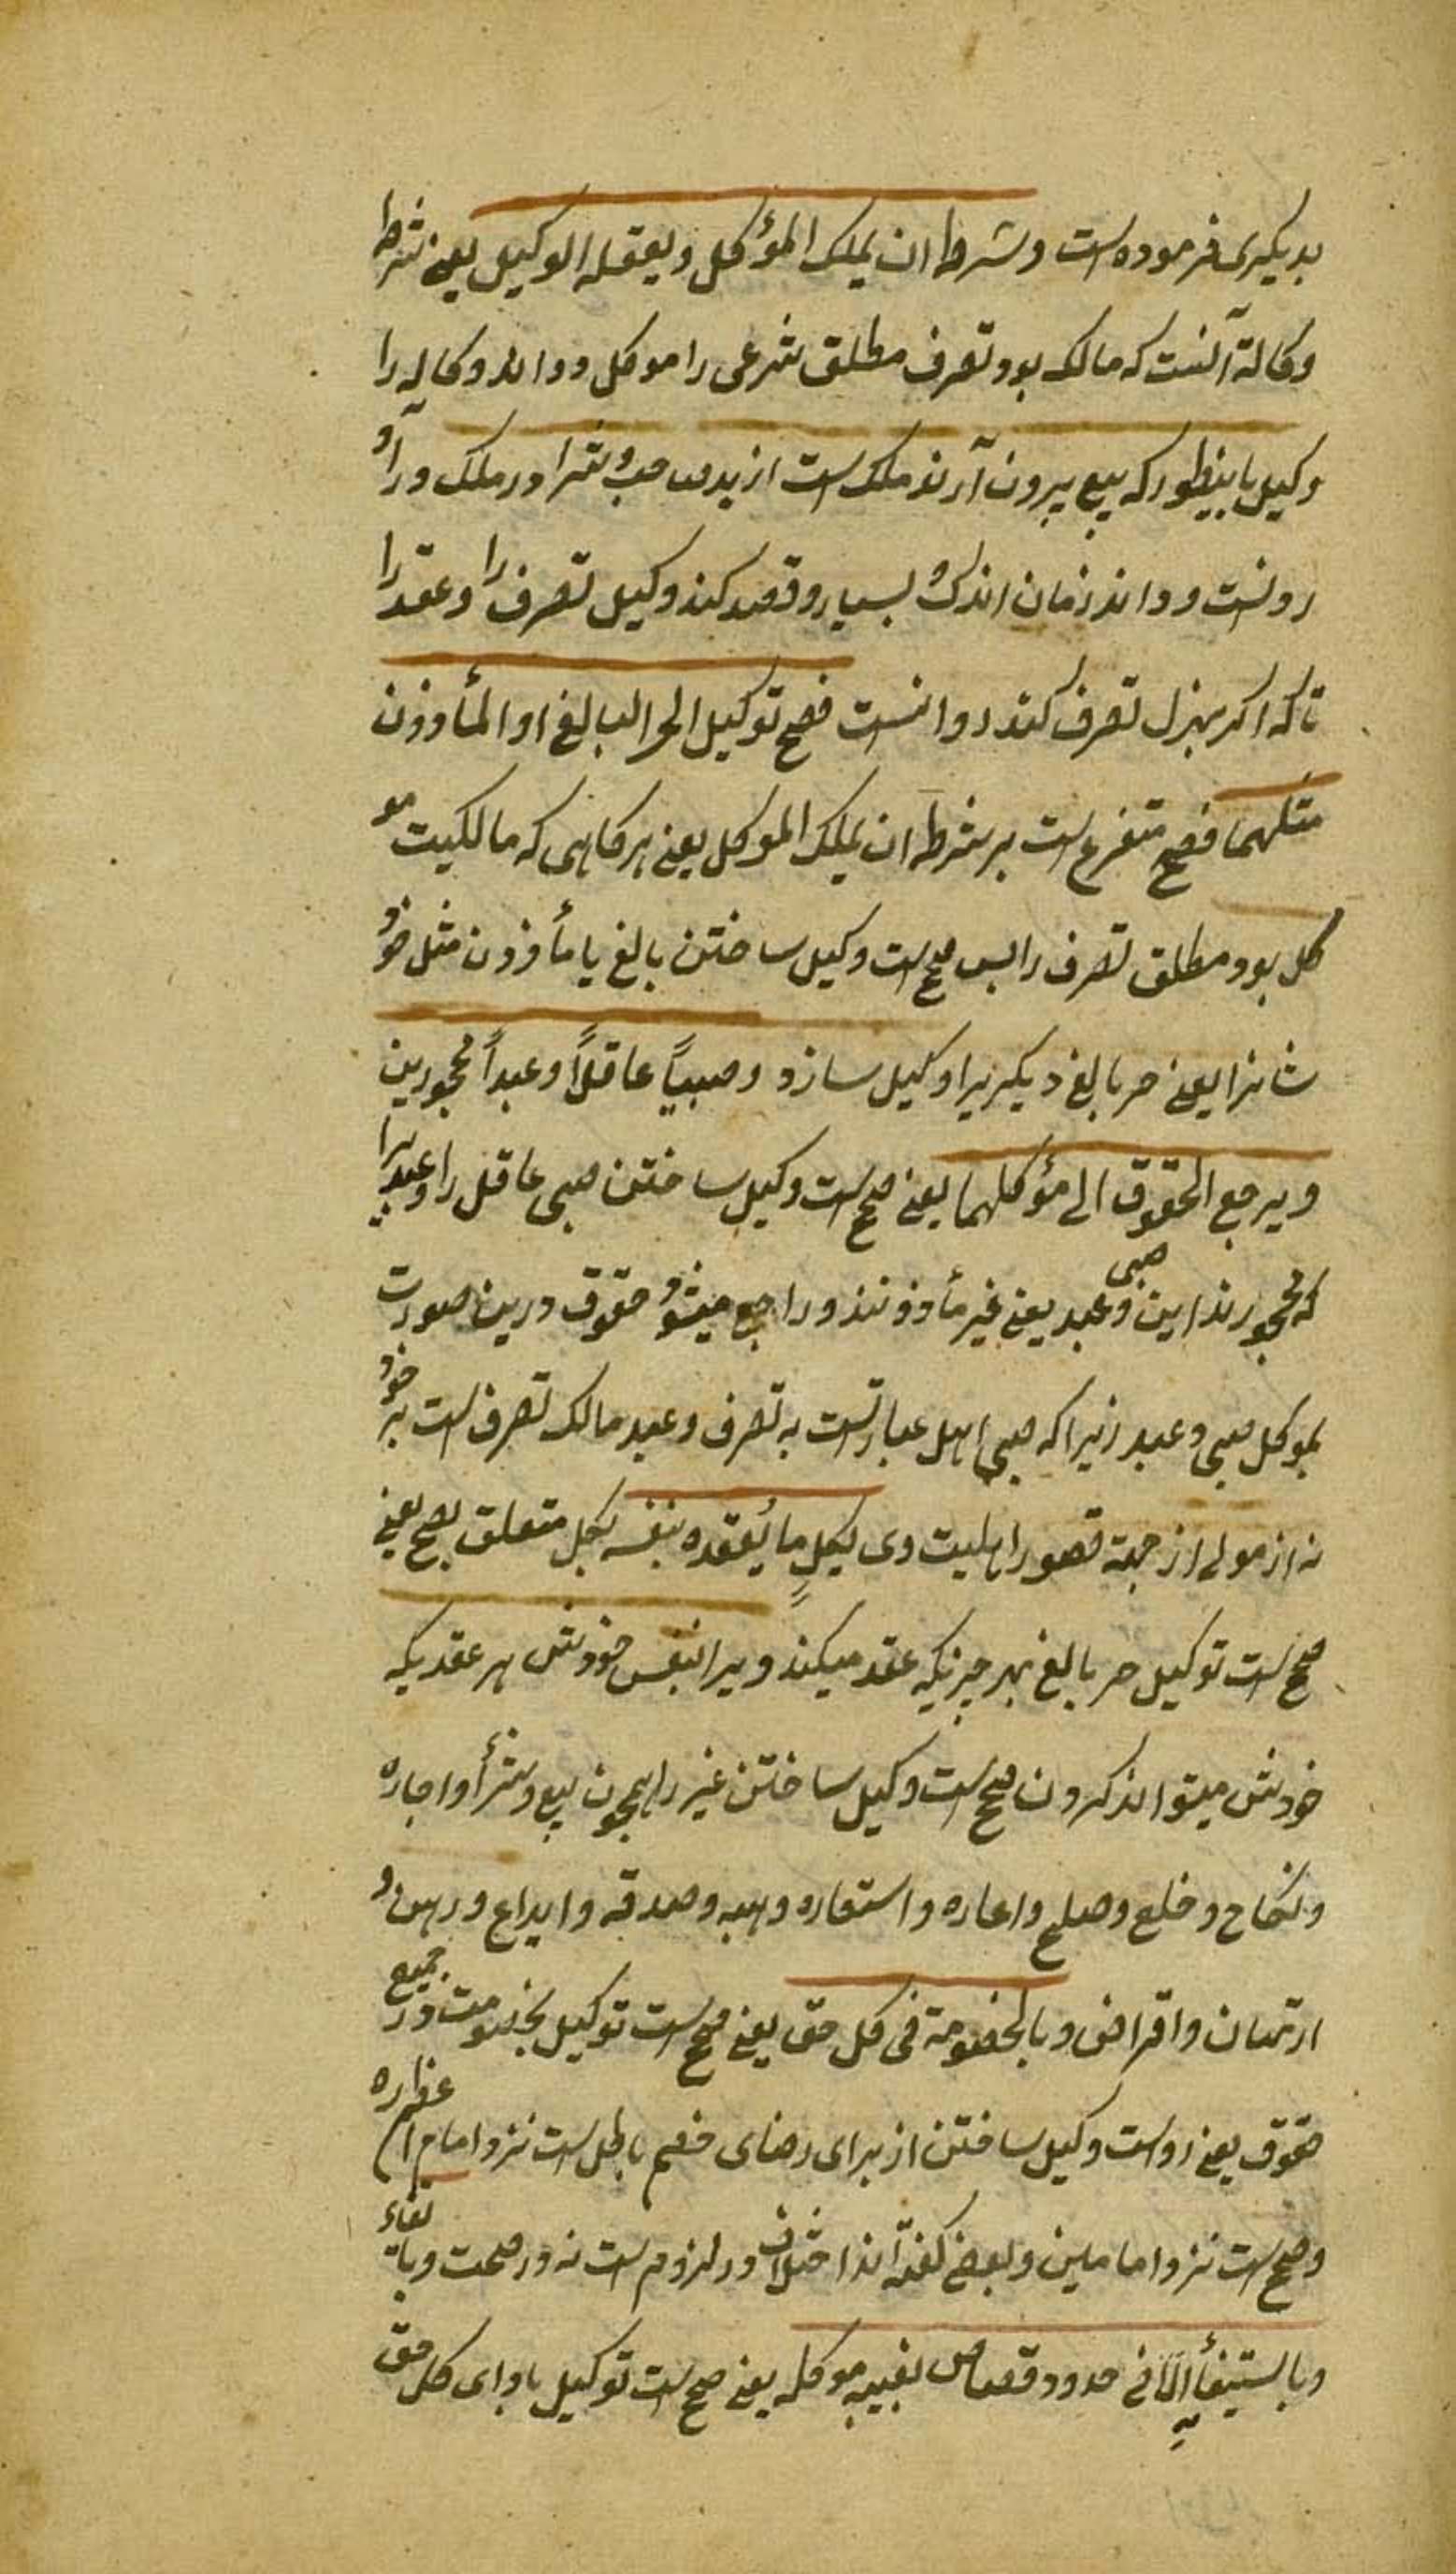 بدیکری فرموده است وشرطه ان یملک المؤکل ویعقله الوکیل یعنی شرط
وکالة آنست که مالک بود تصرف مطلق شرعی را موکل وداند وکاله را
وکیل باینطور که بیع بیرون آرنده ملک است از ید صاحب وشرا در ملک در آو
رونست وداند زمان اندک و بسیار وقصد کند وکیل تصرف را وعقد را
تا که اکر بهزل تصرف کند روا نست فصح توکیل الحر البالغ او المأذون
مثلهما فصح متفرع است بر شرطه ان یملک الموکل یعنی هرکاهی که مالکیت مو
کل بود مطلق تصرف را پس صحیح است وکیل ساختن بالغ یا مأذون مثل خود
شانرا یعنی حر بالغ دیکریرا وکیل سازد وصبیاً عاقلاً وعبداً محجورین
ویرجع الحقوق الی مؤکلهما یعنی صحیح است وکیل ساختن صبی عاقل را وعبدیرا
که محجورند این صبی وعبد یعنی غیر مأذونند وراجع میشود حقوق درین صورت
بموکل صبی وعبد زیرا که صبی اهل عبارتست به تصرف وعبد مالک تصرف است بر خود
نه از مولی از جهة قصور اهلیت وی بکلٍ ما یُعقده بنفسه بکل متعلق بصح یعنی
صحیح است توکیل حر بالغ بهر چیزیکه عقد میکند ویرا بنفس خودش هر عقدیکه
خودش میتواند کردن صحیح است وکیل ساختن غیر را همچون بیع وشرأ واجاره
ونکاح وخلع وصلح واعاره واستعاره وهبه وصدقه وایداع ورهن و
ارتهان واقراض وبالخصومة فی کل حق یعنی صحیح است توکیل بخصومت در جمیع
حقوق یعنی رواست وکیل ساختن از برای رضای خصم باطل است نزد امام ا
وصحیح است نزد امامین وبعضی کفته‌اند اختلاف در لزوم است نه در صحت وبا
وبالستیفأ الّا فی حدود قصاص بغیبه موکله یعنی صحیح است توکیل باوای کل حق